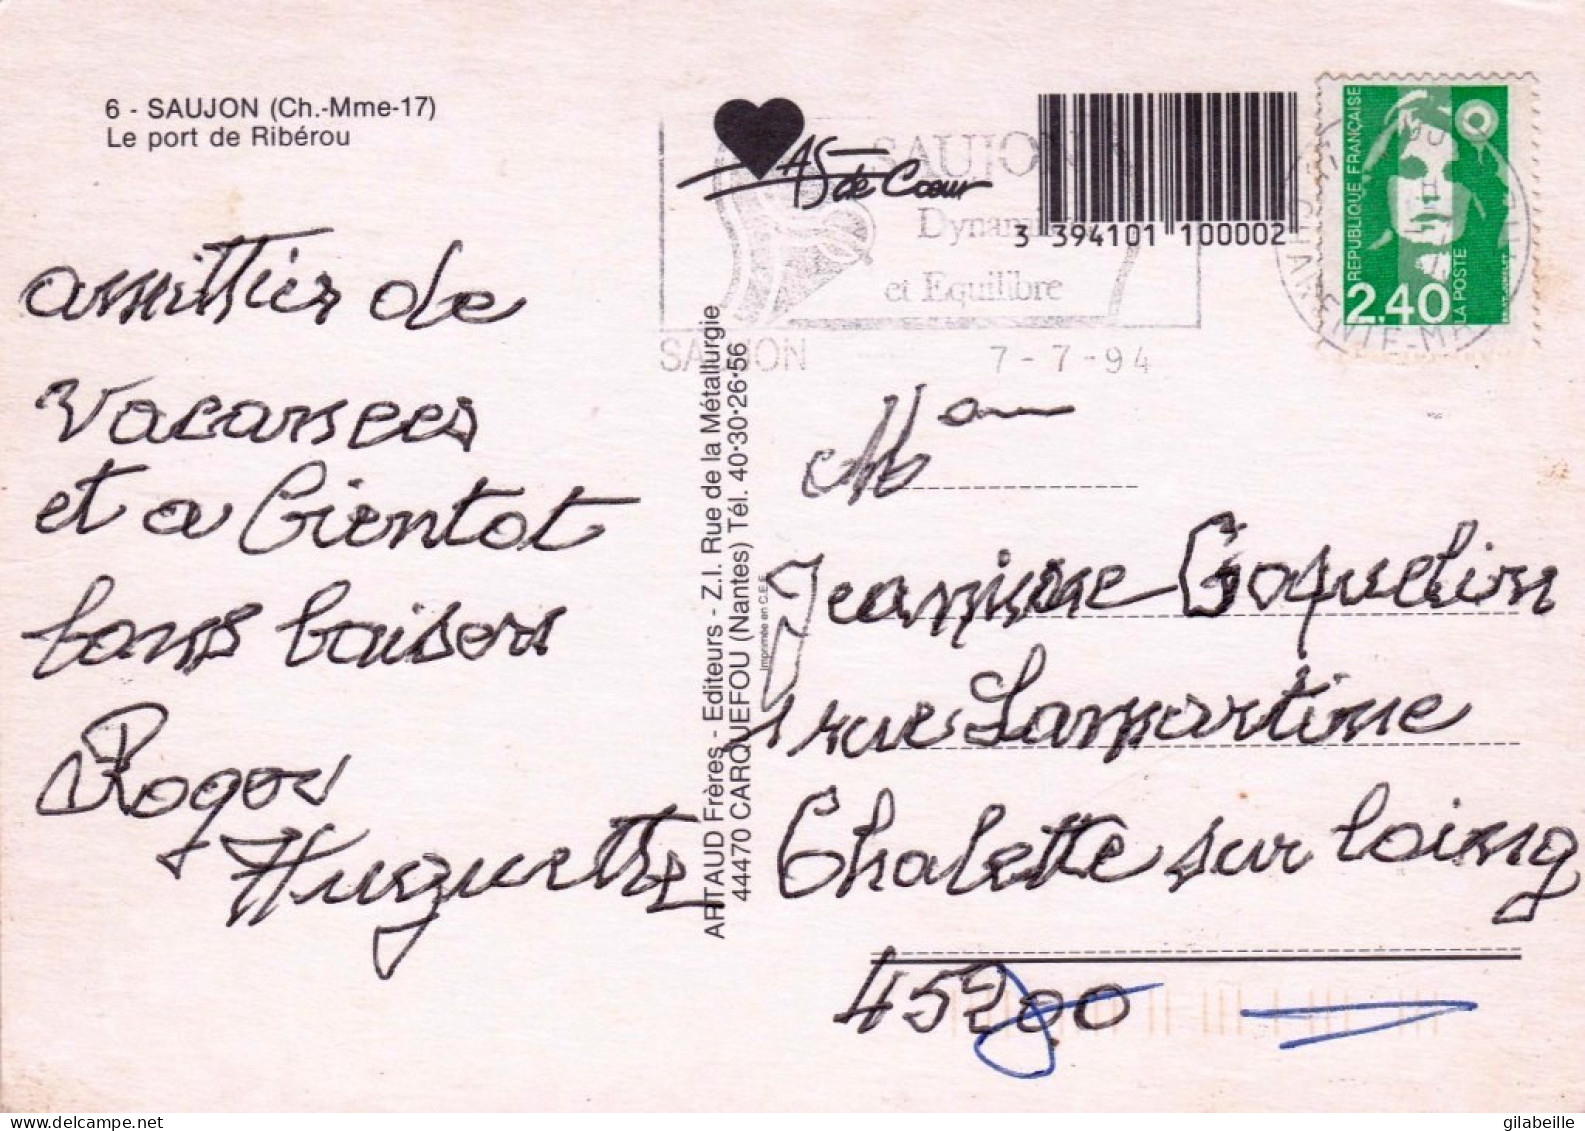 6 - SAUJON (Ch.-Mme-17)
Le port de Ribérou
amitiés de
Vacances
et a bientot
bons baisers
Roger
Huguette
ARTAUD Frères - Editeurs - Z.I. Rue de la Métallurgie
44470 CARQUEFOU (Nantes) Tél. 40·30·26·56
Imprimée en C.E.E.
As de Cœur
SAUJON
Dynam
et Equilibre
SAUJON
7-7-94
3 394101 100002
REPUBLIQUE FRANÇAISE
2,40
LA POSTE
CHARENTE-M
Mam
Jeannine Goquelin
1 rue Lamartine
Chalette sur loing
45200
gilabeille